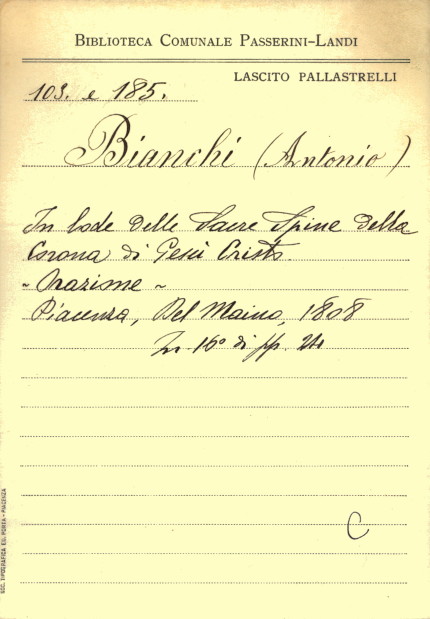 BIBLIOTECA COMUNALE PASSERINI-LANDI
LASCITO PALLASTRELLI
103. e 185.
Bianchi (Antonio)
In lode delle Sacre Spine della
Corona di Gesù Cristo
~ Orazione ~
Piacenza, Del Maino, 1808
In 16° di pp. 24
C
SOC. TIPOGRAFICA ED. PORTA - PIACENZA